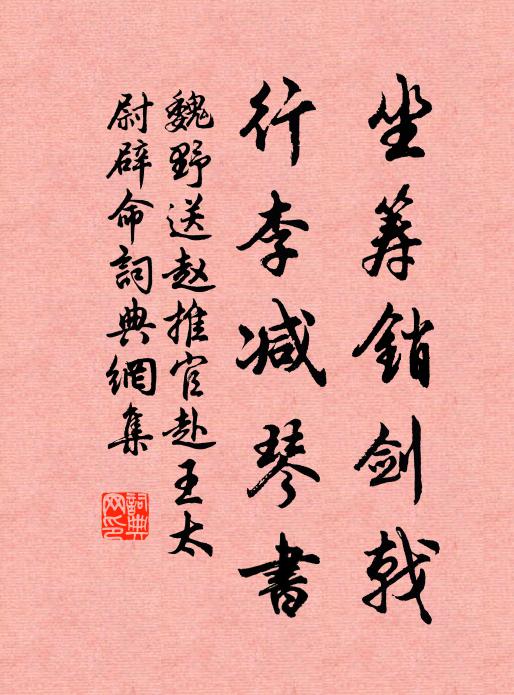 坐筹銷剑戟
行李减琴書
魏野送赵推官赴王太
尉辟命詞典網集
詞典
网印